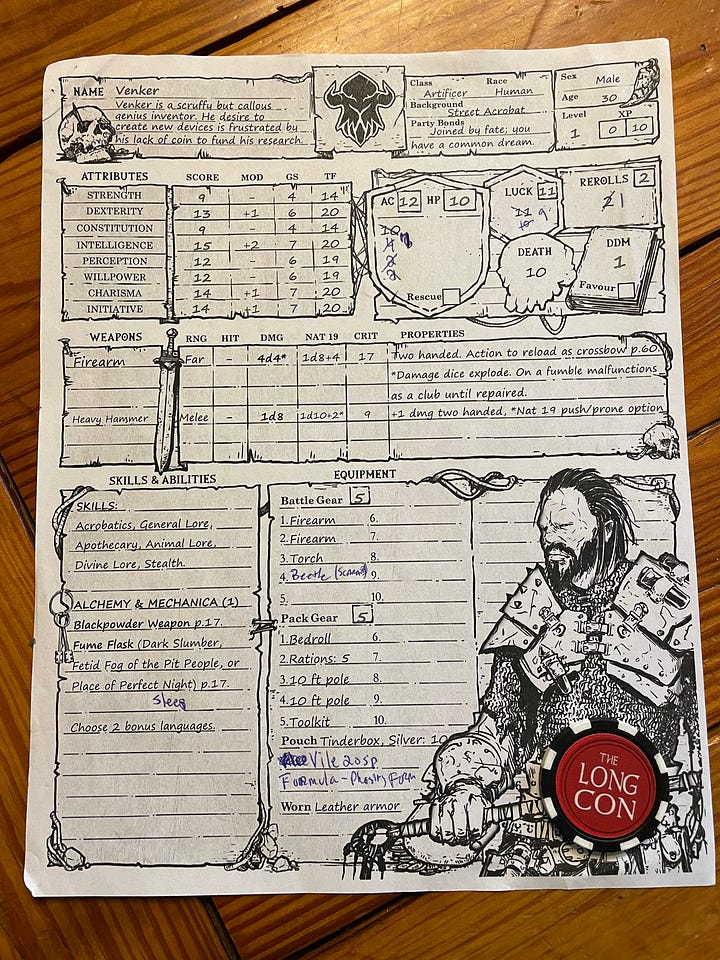 NAME Venker
Venker is a scruffy but callous
genius inventor. He desire to
create new devices is frustrated by
his lack of coin to fund his research.
Class Race
Artificer Human
Background
Street Acrobat
Party Bonds
Joined by fate; you
have a common dream.
Sex Male
Age 30
Level XP
1 0 10
ATTRIBUTES SCORE MOD GS TF
STRENGTH 9 - 4 14
DEXTERITY 13 +1 6 20
CONSTITUTION 9 4 14
INTELLIGENCE 15 +2 7 20
PERCEPTION 12 - 6 19
WILLPOWER 12 - 6 19
CHARISMA 14 +1 7 20
INITIATIVE 14 +1 7 20
AC 12 HP 10
10
Rescue
LUCK 11
11 9
10
REROLLS 2
2 1
DEATH
10
DDM
1
Favour
WEAPONS RNG HIT DMG NAT 19 CRIT PROPERTIES
Firearm Far - 4d4* 1d8+4 17 Two handed. Action to reload as crossbow p.60
*Damage dice explode. On a fumble malfunctions
as a club until repaired.
Heavy Hammer Melee - 1d8 1d10+2* 9 +1 dmg two handed, *Nat 19 push/prone option
SKILLS & ABILITIES
SKILLS:
Acrobatics, General Lore,
Apothecary, Animal Lore,
Divine Lore, Stealth.
ALCHEMY & MECHANICA (1)
Blackpowder Weapon p.17.
Fume Flask (Dark Slumber,
Fetid Fog of the Pit People, or
Place of Perfect Night) p.17.
Sleep
Choose 2 bonus languages.
EQUIPMENT
Battle Gear 5
1. Firearm 6.
2. Firearm 7.
3. Torch 8.
4. Beetle 9.
5. 10.
Pack Gear 5
1. Bedroll 6.
2. Rations: 5 7.
3. 10 ft pole 8.
4. 10 ft pole 9.
5. Toolkit 10.
Pouch Tinderbox, Silver: 10
Vile 20sp
Formula - Phasing Form
Worn Leather armor
THE
LONG
CON